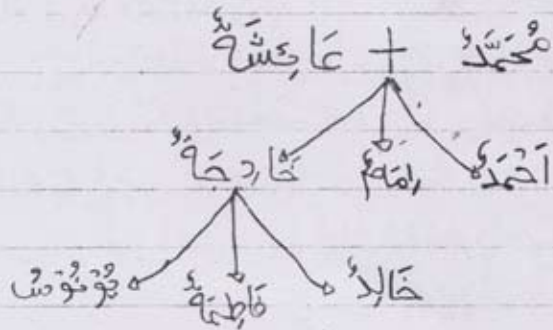 مُحَمَّدٌ + عَائِشَةٌ
أَحْمَدٌ رِمَةٌ خَادِجَةٌ
خَالِدٌ فَاطِمَةٌ يُوْنُوْسٌ